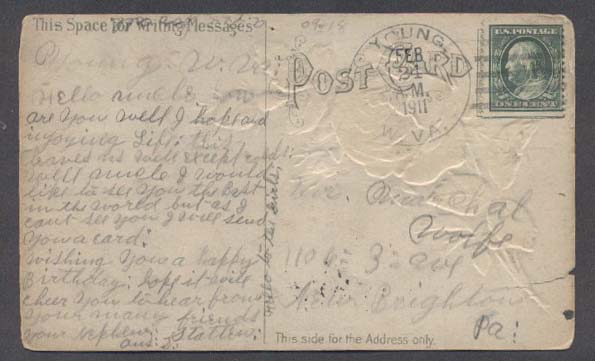 This Space for Writing Messages
09-18
Young W. Va
Hello uncle how
are you well I hope and
injoying Life: this
leaves us well except colds:
well uncle I would
like to see you the Best
in the world but as I
cant see you I will send
you a card:
wishing you a happy
Birthday: hope it will
cheer you to hear from
your many friends
your nephew: Statten:
and
Hello to the Girls,
POST CARD
YOUNG
FEB
21
M.
1911
W. VA.
U.S. POSTAGE
ONE CENT
Mr. Marshal
Wolfe
1106 3rd ave
New Brighton
Pa:
This side for the Address only.